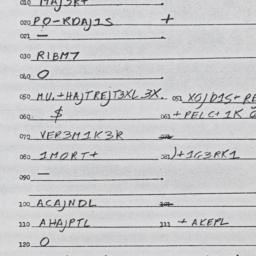 010 MAJSR+
020 PO-RDAJ1S +
021 —
030 RIBM7
040 O
050 M.U.+HAJTREJT3XL 3X. 051
060 $ 061 +PELC+ 1K
070 VER3M1K3R
080 1MORT+ 081 )+1G3RK1
090 —
100 ACAJNDL
110 AHAJPTL 111 + AKEPL
120 O